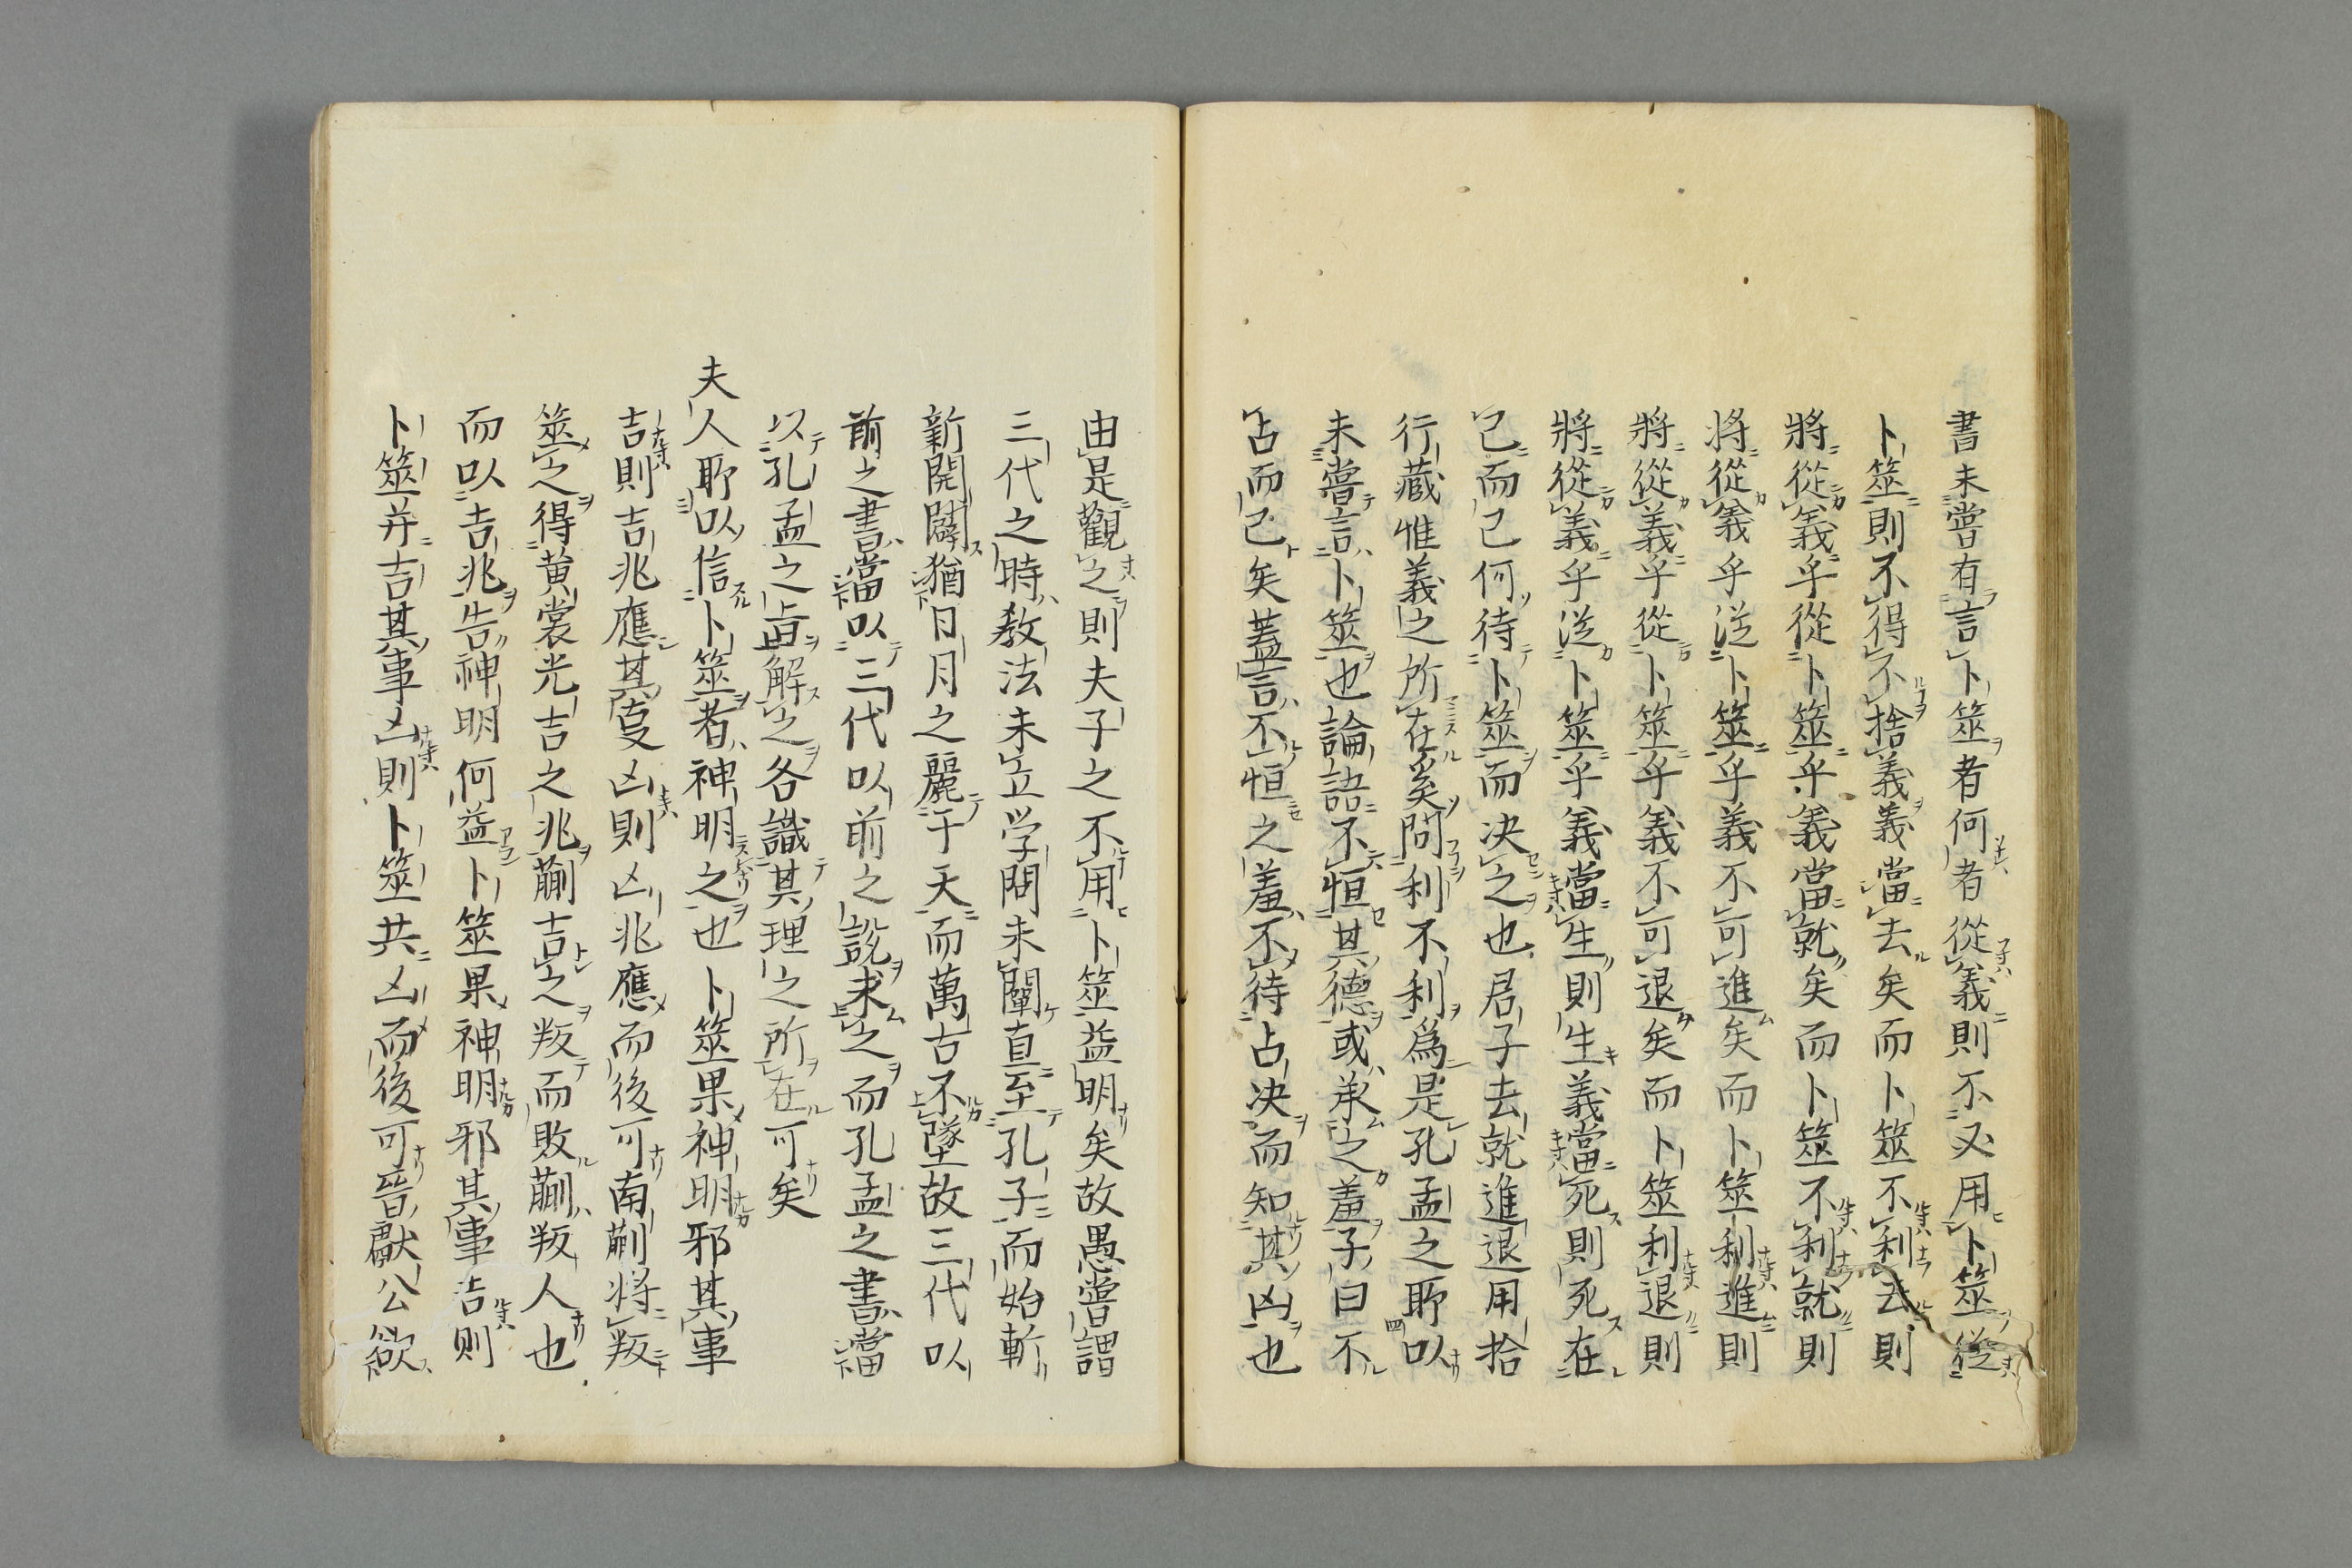 書未嘗有言卜筮者何者從義則不必用卜筮從
卜筮則不得不捨義義當去矣而卜筮不利去則
將從義乎從卜筮乎義當就矣而卜筮不利就則
将從義乎從卜筮乎義不可進矣而卜筮利進則
將從義乎從卜筮乎義不可退矣而卜筮利退則
將從義乎從卜筮乎義當生則生義當死則死在
己而已何待卜筮而决之也君子去就進退用捨
行藏惟義之所在奚問利不利爲是孔孟之所以
未嘗言卜筮也論語不恒其德或承之羞子曰不
占而已矣蓋言不恒之羞不待占决而知其凶也
由是觀之則夫子之不用卜筮益明矣故愚嘗謂
三代之時教法未立学問未闡直至孔子而始斬
新開闢猶日月之麗于天而萬古不墜故三代以
前之書當以三代以前之説求之而孔孟之書當
以孔孟之旨解之各識其理之所在可矣
夫人所以信卜筮者神明之也卜筮果神明邪其事
吉則吉兆應其事凶則凶兆應而後可南蒯将叛
筮之得黄裳元吉之兆蒯吉之叛而敗蒯叛人也
而以吉兆告神明何益卜筮果神明邪其事吉则
卜筮并吉其事凶則卜筮共凶而後可晉獻公欲